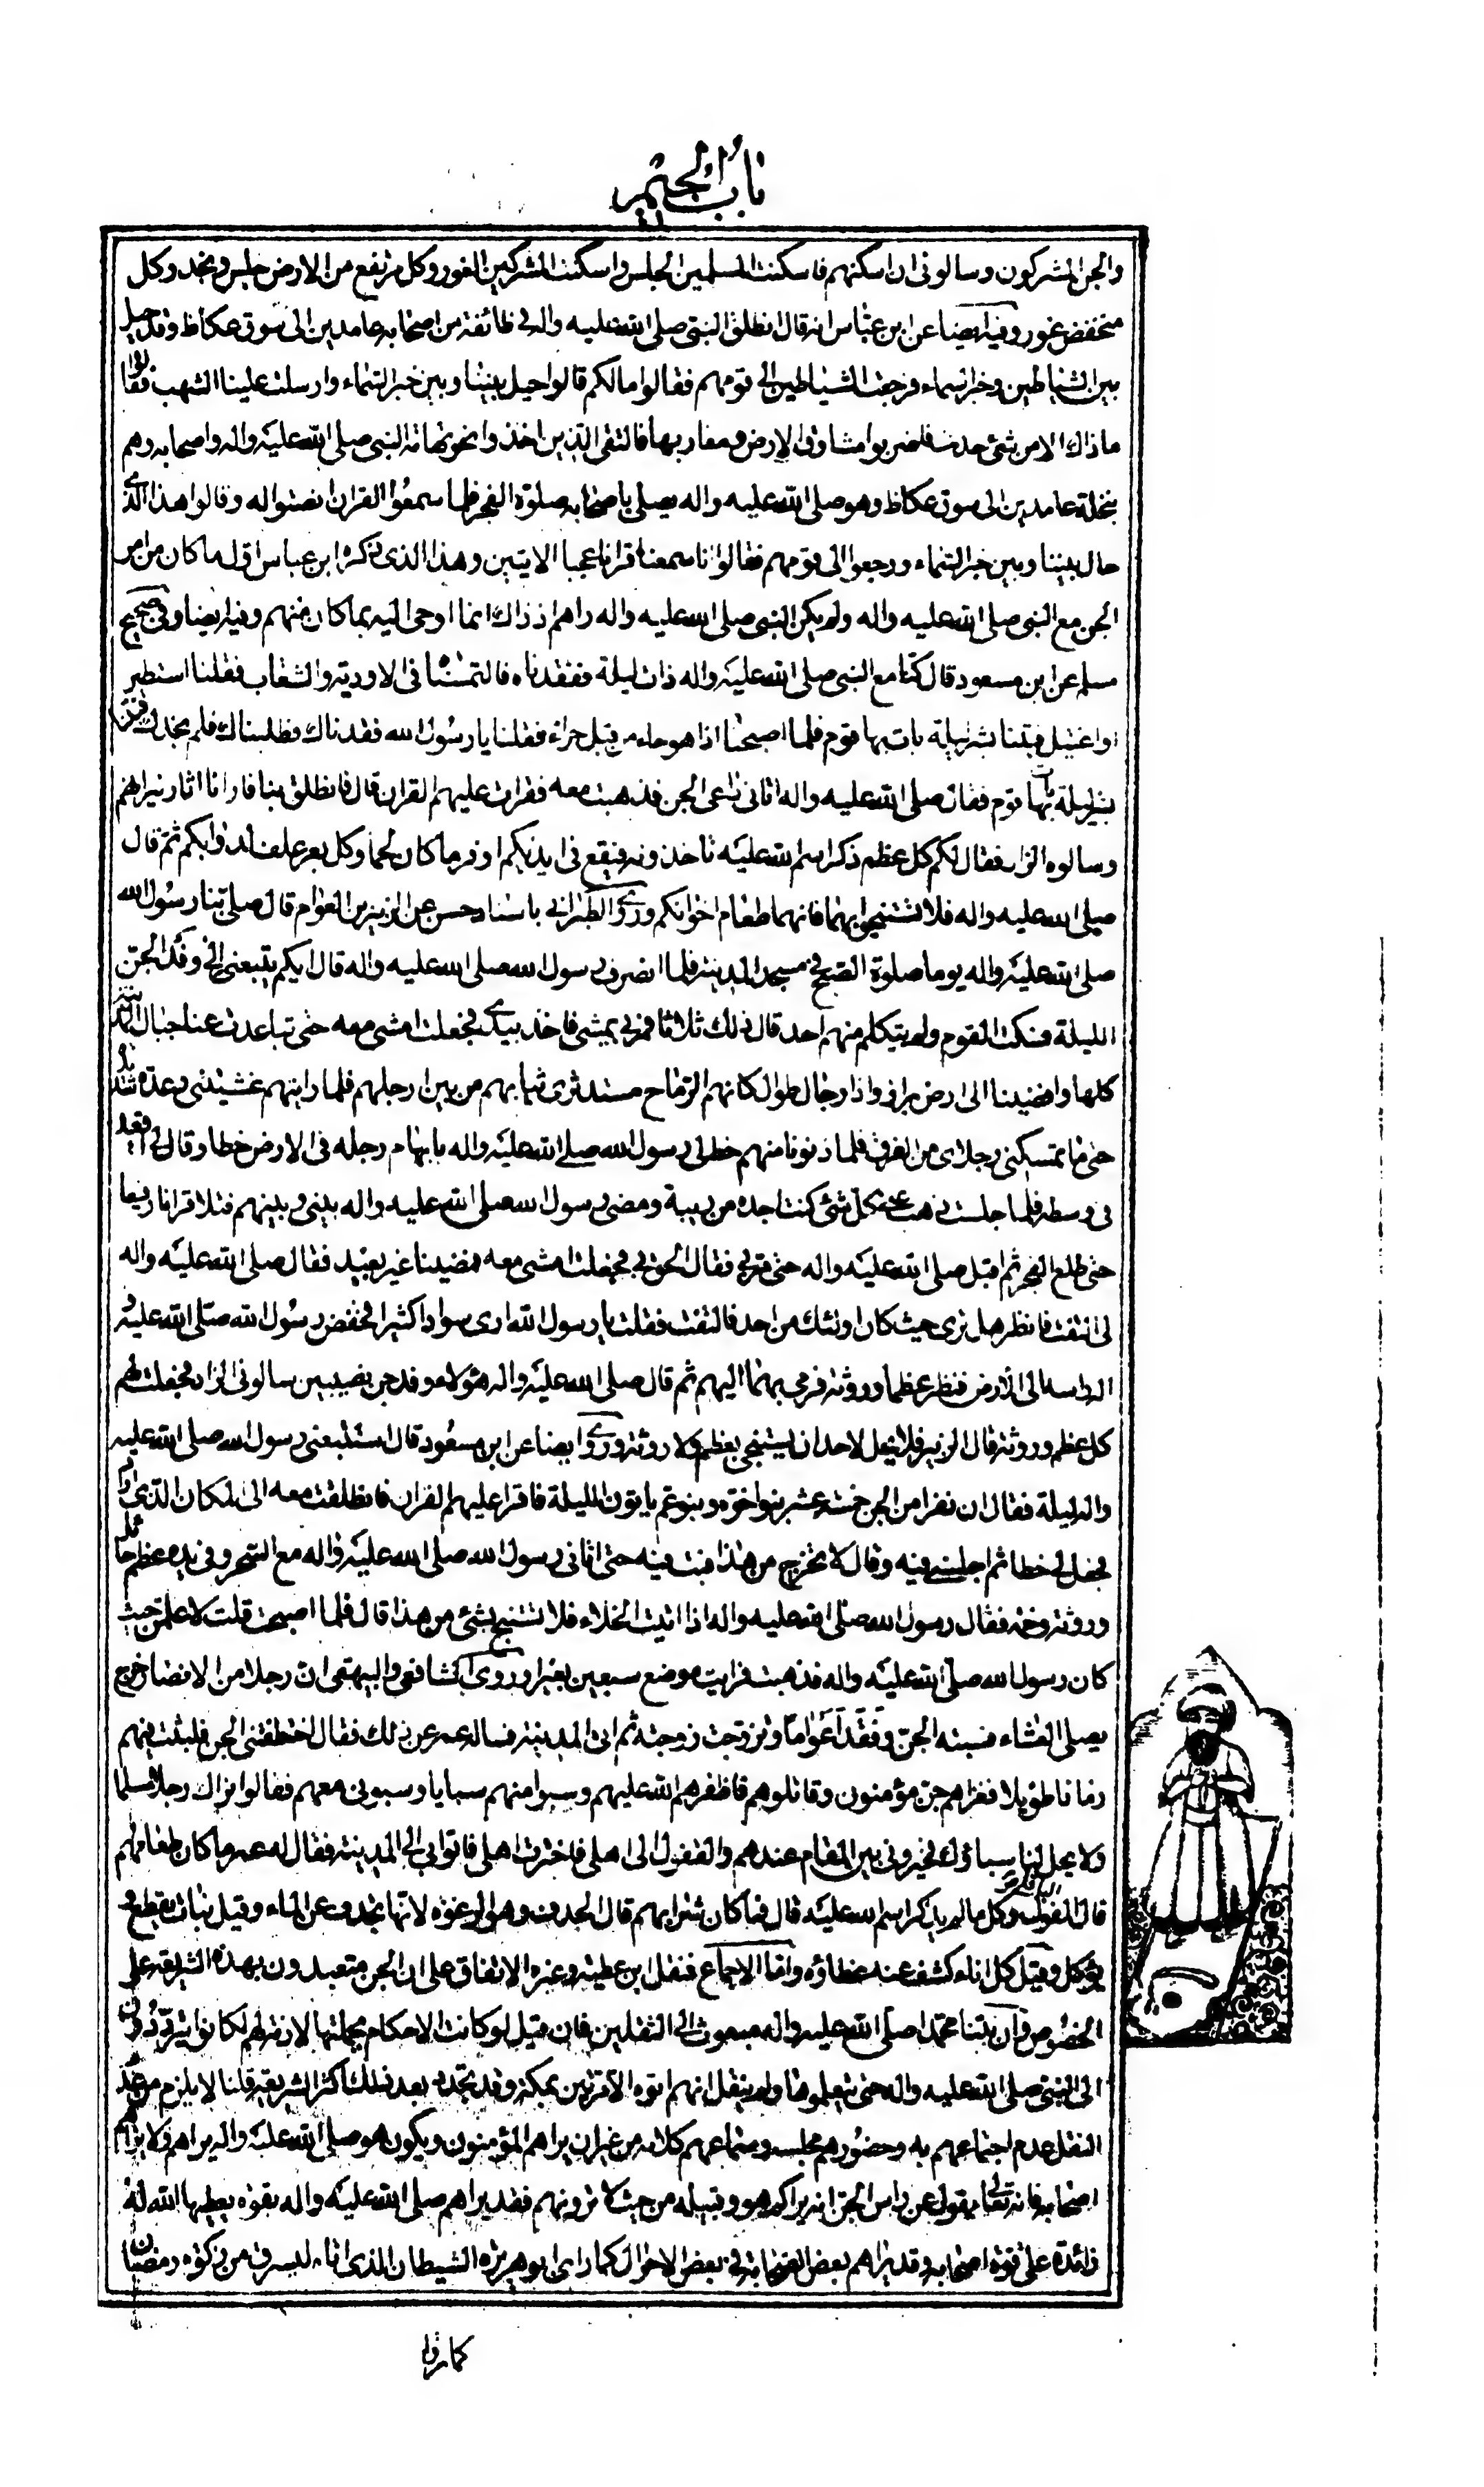 باب الجيم
والجن المشركون وسالونى ان اسكنهم فاسكنت المسلمين الجلس واسكنت المشركين الغور وكل مرتفع من الارض جلس ونجد وكل
منخفض غور وفيه ايضا عن ابن عباس انه قال انطلق النبى صلى الله عليه واله فى طائفة من اصحابه عامدين الى سوق عكاظ وقد حيل
بين الشياطين وخبر السماء فرجعت الشياطين الى قومهم فقالوا مالكم قالوا حيل بيننا وبين خبر السماء وارسلت علينا الشهب فقالوا
ماذاك الا من شئ حدث فاضربوا مشارق الارض ومغاربها فالتقى الذين اخذوا نحو تهامة النبى صلى الله عليه واله واصحابه وهم
بنخلة عامدين الى سوق عكاظ وهو صلى الله عليه واله يصلى باصحابه صلوة الفجر فلما سمعوا القران انصتوا له وقالوا هذا الذى
حال بيننا وبين خبر السماء ورجعوا الى قومهم فقالوا انا سمعنا قرانا عجبا الايتين وهذا الذى ذكره ابن عباس اول ما كان من امر
الجن مع النبى صلى الله عليه واله ولم يكن النبى صلى الله عليه واله راهم اذ ذاك انما اوحى اليه بما كان منهم وفيه ايضا وفى صحيح
مسلم عن ابن مسعود قال كنا مع النبى صلى الله عليه واله ذات ليلة ففقدناه فالتمسناه فى الاودية والشعاب فقلنا استطير
او اغتيل فبتنا بشر ليلة بات بها قوم فلما اصبحنا اذا هو جاء من قبل حراء فقلنا يا رسول الله فقدناك فطلبناك فلم نجدك فبتنا
بشر ليلة بات بها قوم فقال صلى الله عليه واله اتانى داعى الجن فذهبت معه فقرات عليهم القران قال فانطلق بنا فارانا اثار نيرانهم
وسالوه الزاد فقال لكم كل عظم ذكر اسم الله عليه تاخذونه فيقع فى ايديكم اوفر ما كان لحما وكل بعر علف لدوابكم ثم قال
صلى الله عليه واله فلا تستنجوا بهما فانهما طعام اخوانكم وروى الطبرانى باسناد حسن عن الزبير بن العوام قال صلى بنا رسول الله
صلى الله عليه واله يوما صلوة الصبح فى مسجد المدينة فلما انصرف رسول الله صلى الله عليه واله قال ايكم يتبعنى الى وفد الجن
الليلة فسكت القوم ولم يتكلم منهم احد قال ذلك ثلاثا فمر بى يمشى فاخذ بيدى فجعلت امشى معه حتى تباعدت عنا جبال المدينة
كلها وافضينا الى ارض براز واذا رجال طوال كانهم الرماح مستدثرى ثيابهم من بين ارجلهم فلما رايتهم غشيتنى رعدة شديدة
حتى ما تمسكنى رجلاى من الفرق فلما دنونا منهم خط لى رسول الله صلى الله عليه واله بابهام رجله فى الارض خطا وقال لى اقعد
فى وسطه فلما جلست ذهب عنى كل شئ كنت اجده من ريبة ومضى رسول الله صلى الله عليه واله بينى وبينهم فتلا قرانا رفيعا
حتى طلع الفجر ثم اقبل صلى الله عليه واله حتى مر بى فقال الحق بى فجعلت امشى معه فمضينا غير بعيد فقال صلى الله عليه واله
لى التفت فانظر هل ترى حيث كان اولئك من احد فالتفت فقلت يا رسول الله ارى سوادا كثيرا فخفض رسول الله صلى الله عليه و
اله راسه الى الارض فنظر عظما وروثة فرمى بهما اليهم ثم قال صلى الله عليه واله هؤلاء وفد جن نصيبين سالونى الزاد فجعلت لهم
كل عظم وروثة قال الزبير فلا يحل لاحد ان يستنجى بعظم ولا روثة وروى ايضا عن ابن مسعود قال استتبعنى رسول الله صلى الله عليه
واله ليلة فقال ان نفرا من الجن خمسة عشر بنو اخوة وبنو عم ياتون الليلة فاقرا عليهم القران فانطلقت معه الى المكان الذى اراد
فجعل لى خطا ثم اجلسنى فيه وقال لا تخرج من هذا فبت فيه حتى اتانى رسول الله صلى الله عليه واله مع السحر وفى يده عظم حائل
وروثة وحمة فقال رسول الله صلى الله عليه واله اذا اتيت الخلاء فلا تستنج بشئ من هذا قال فلما اصبحت قلت لاعلمن حيث
كان رسول الله صلى الله عليه واله فذهبت فرايت موضع سبعين بعيرا وروى الشافعى والبيهقى ان رجلا من الانصار خرج
يصلى العشاء فسبته الجن وفقد اعواما وتزوجت زوجته ثم اتى المدينة فساله عمر عن ذلك فقال اختطفتنى الجن فلبثت فيهم
زمانا طويلا فغزاهم جن مؤمنون وقاتلوهم فاظفرهم الله عليهم وسبوا منهم سبايا وسبونى معهم فقالوا نراك رجلا مسلما
ولا يحل لنا سباؤك فخيرونى بين المقام عندهم والقفول الى اهلى فاخترت اهلى فاتوا بى الى المدينة فقال له عمر ما كان طعامهم
قال الفول وكل ما لم يذكر اسم الله عليه قال فما كان شرابهم قال الجدف وهو الرغوة لانها تجدف عن الماء وقيل نبات يقطع و
يؤكل وقيل كل اناء كشف عنه غطاؤه واما الاجماع فنقل ابن عطية وغيره الاتفاق على ان الجن متعبدون بهذه الشريعة على
الخصوص وان نبينا محمدا صلى الله عليه واله مبعوث الى الثقلين فان قيل لو كانت الاحكام بجملتها لازمة لهم لكانوا يترددون
الى النبى صلى الله عليه واله حتى يتعلموها ولم ينقل انهم اتوه الا مرتين بمكة وقد تجدد بعد ذلك اكثر الشريعة قلنا لا يلزم من عدم
النقل عدم اجتماعهم به وحضورهم مجلسه وسماعهم كلامه من غير ان يراهم المؤمنون ويكون هو صلى الله عليه واله يراهم ولا يراهم
اصحابه فانه تعالى يقول عن راس الجن انه يراكم هو وقبيله من حيث لا ترونهم فقد يراهم صلى الله عليه واله بقوة يعطيها الله له
زائدة على قوة اصحابه وقد يراهم بعض الصحابة فى بعض الاحوال كما راى ابو هريرة الشيطان الذى اتاه ليسرق من زكوة رمضان
كما رواه